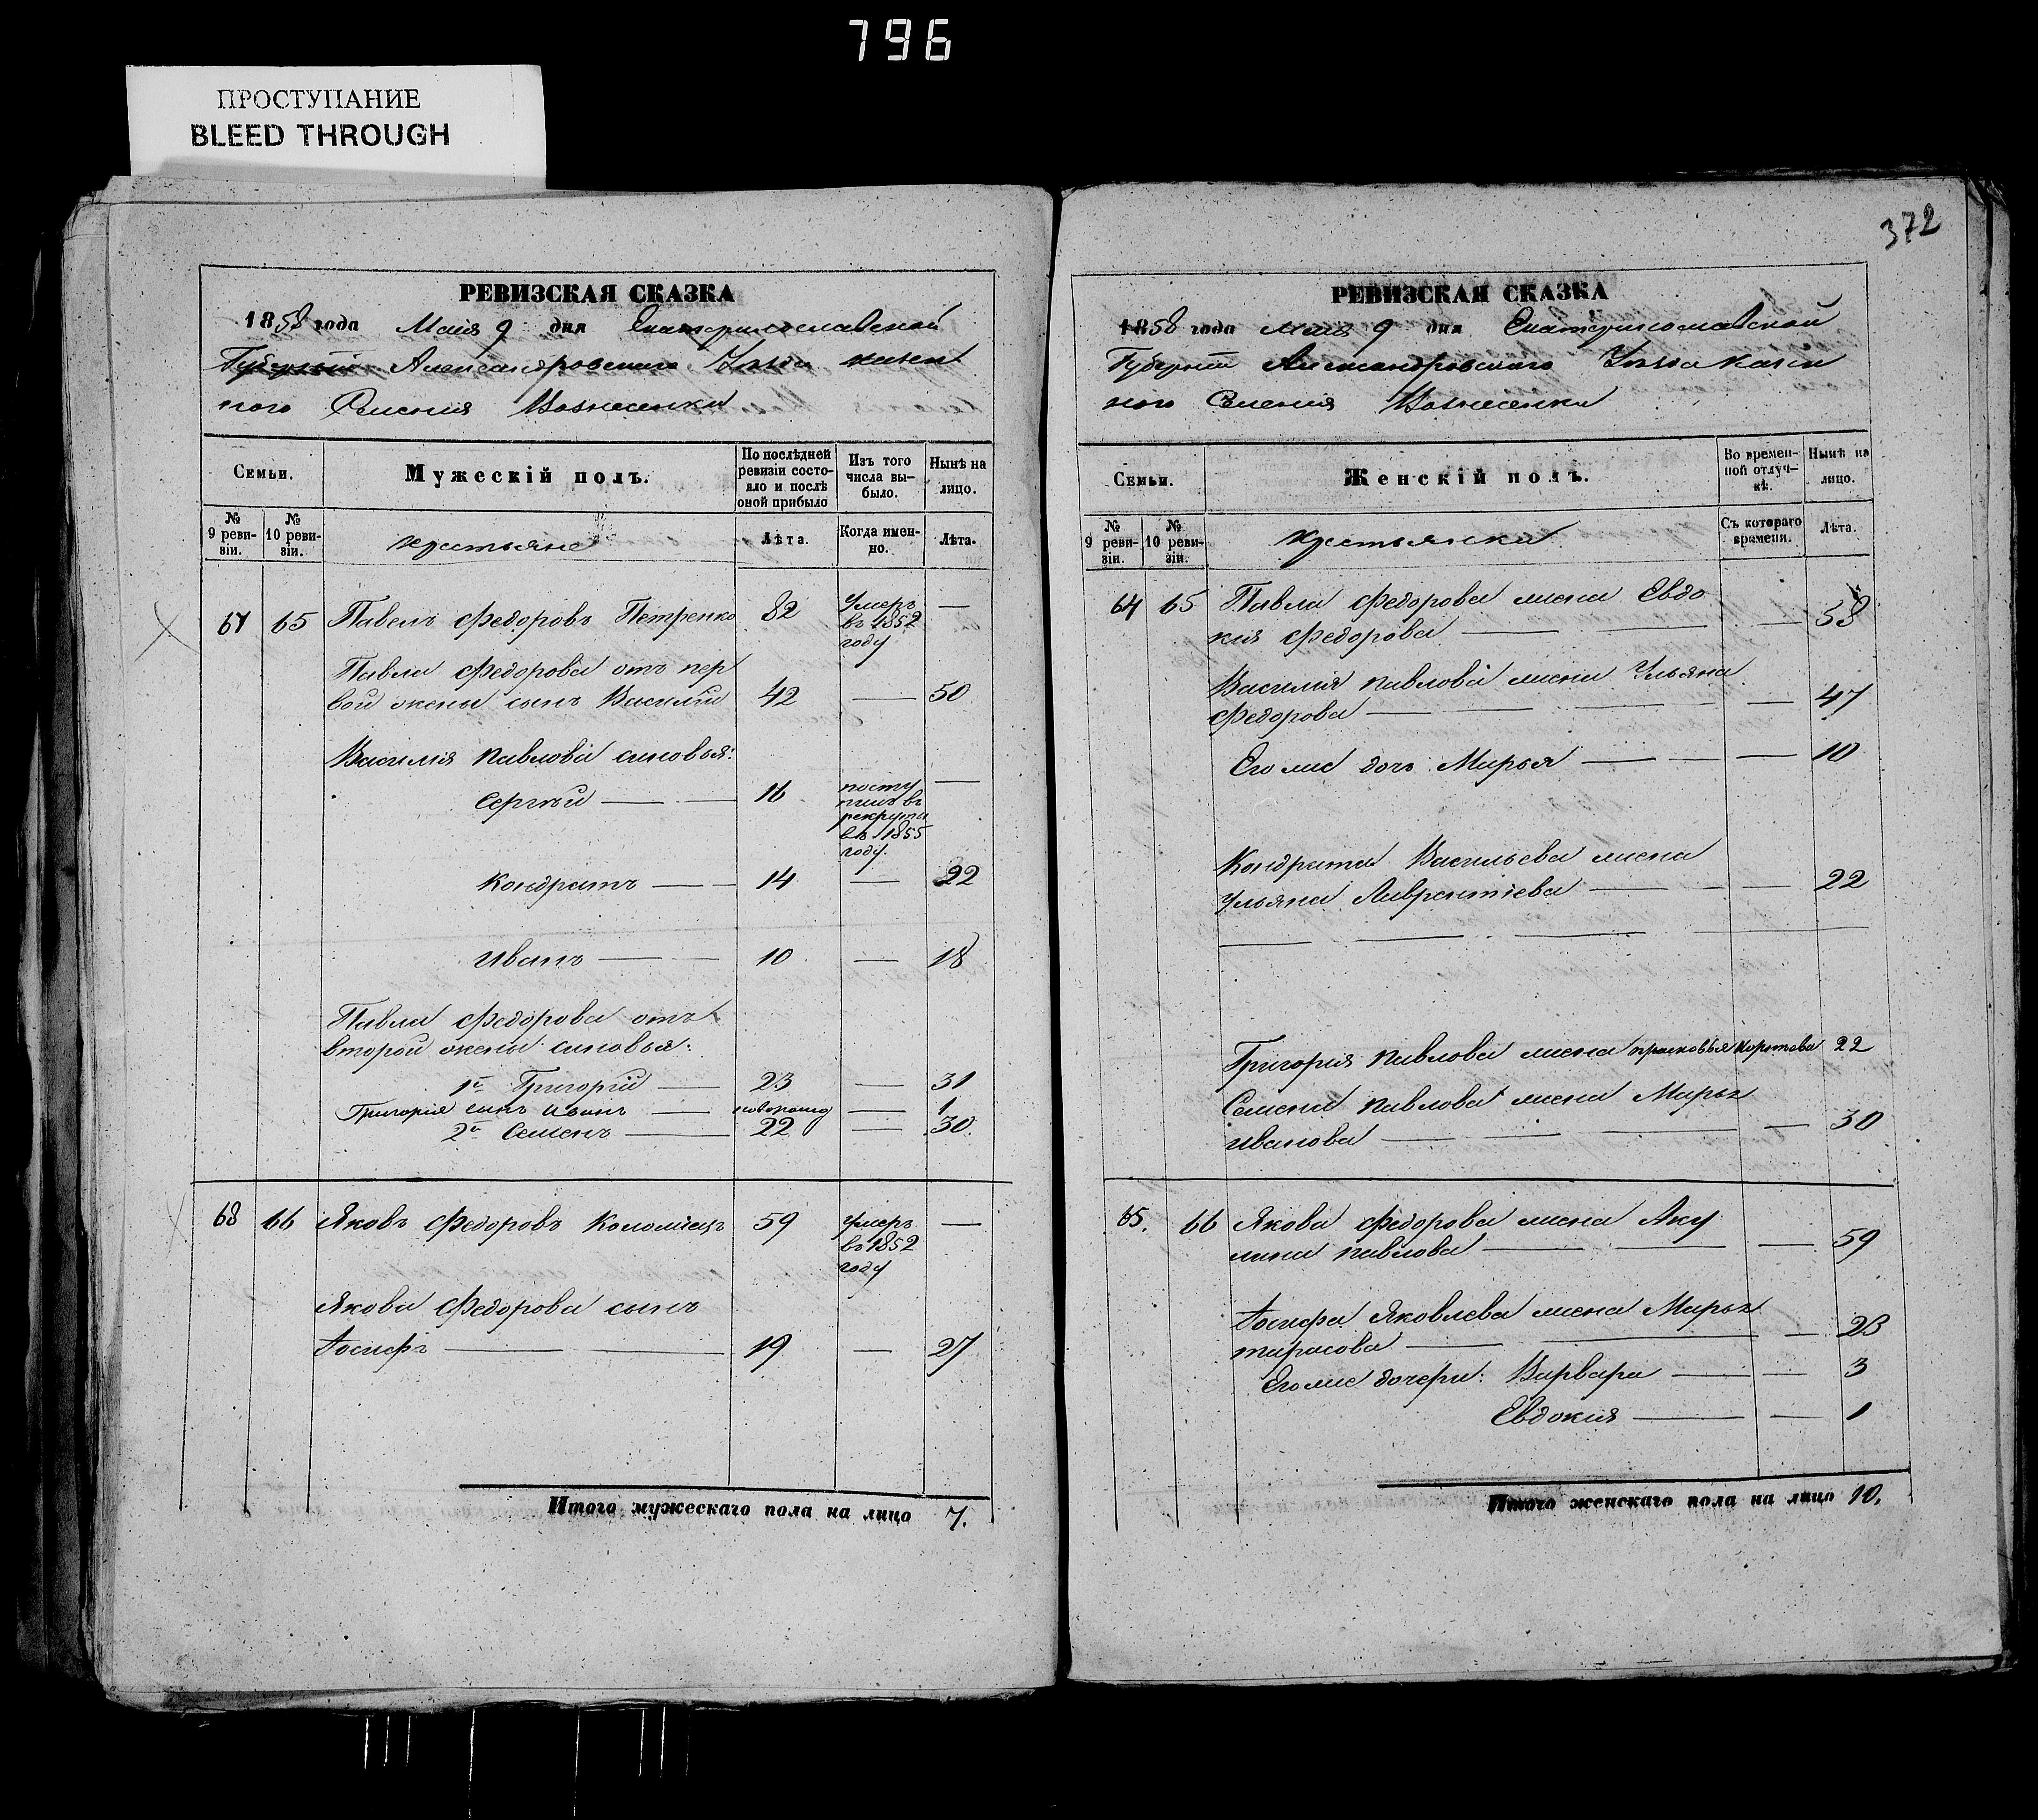 796
ПРОСТУПАНИЕ
BLEED THROUGH
РЕВИЗСКАЯ СКАЗКА
1858 года Маія 9 дня Екатеринославской
Губерніи Александровскаго Уѣзда казен
ного Селенія Вознесенки
Семьи.
Мужескій полъ.
По послѣдней ревизіи состо-
яло и послѣ оной прибыло
Изъ того числа вы-
было.
Нынѣ на лицо.
№ 9 реви-
зіи.
№ 10 реви-
зіи.
крестьяне
Лѣта.
Когда имен-
но.
Лѣта.
67 65 Павелъ Федоровъ Петренко 82 Умеръ —
въ 1852
году
Павла Федорова отъ пер
вой жены сынъ Василій 42 — 50
Василія Павлова сыновья:
Сергѣй — 16 посту —
пилъ въ
рекруты
въ 1855
году.
Кондратъ — 14 — 22
Иванъ — 10 — 18
Павла Федорова отъ
второй жены сыновья:
1й Григорій — 23 — 31
Григорія сынъ Иванъ — новорожд — 1
2й Семенъ — 22 — 30
68 66 Яковъ Федоровъ Коломіецъ 59 Умеръ —
въ 1852
году
Якова Федорова сынъ
Іосифъ — 19 — 27
Итого мужескаго пола на лицо 7.
372
РЕВИЗСКАЯ СКАЗКА
1858 года Маія 9 дня Екатеринославской
Губерніи Александровскаго Уѣзда казен
ного Селенія Вознесенки
Семьи.
Женскій полъ.
Во времен-
ной отлуч-
кѣ.
Нынѣ на лицо.
№ 9 реви-
зіи.
№ 10 реви-
зіи.
крестьянки
Съ котораго времени.
Лѣта.
64 65 Павла Федорова жена Евдо
кія Федорова — — 58
Василія Павлова жена Ульяна
Федорова — — 47
Его же дочь Марья — — 10
Кондрата Васильева жена
Ульяна Лаврентіева — — 22
Григорія Павлова жена Прасковья 22
Семена Павлова жена Марья
Иванова — — 30
65. 66 Якова Федорова жена Аку
лина Павлова — — 59
Іосифа Яковлева жена Марья
Тарасова — — 23
Его же дочери: Варвара — — 3
Евдокія — — 1
Итого женскаго пола на лицо 10.